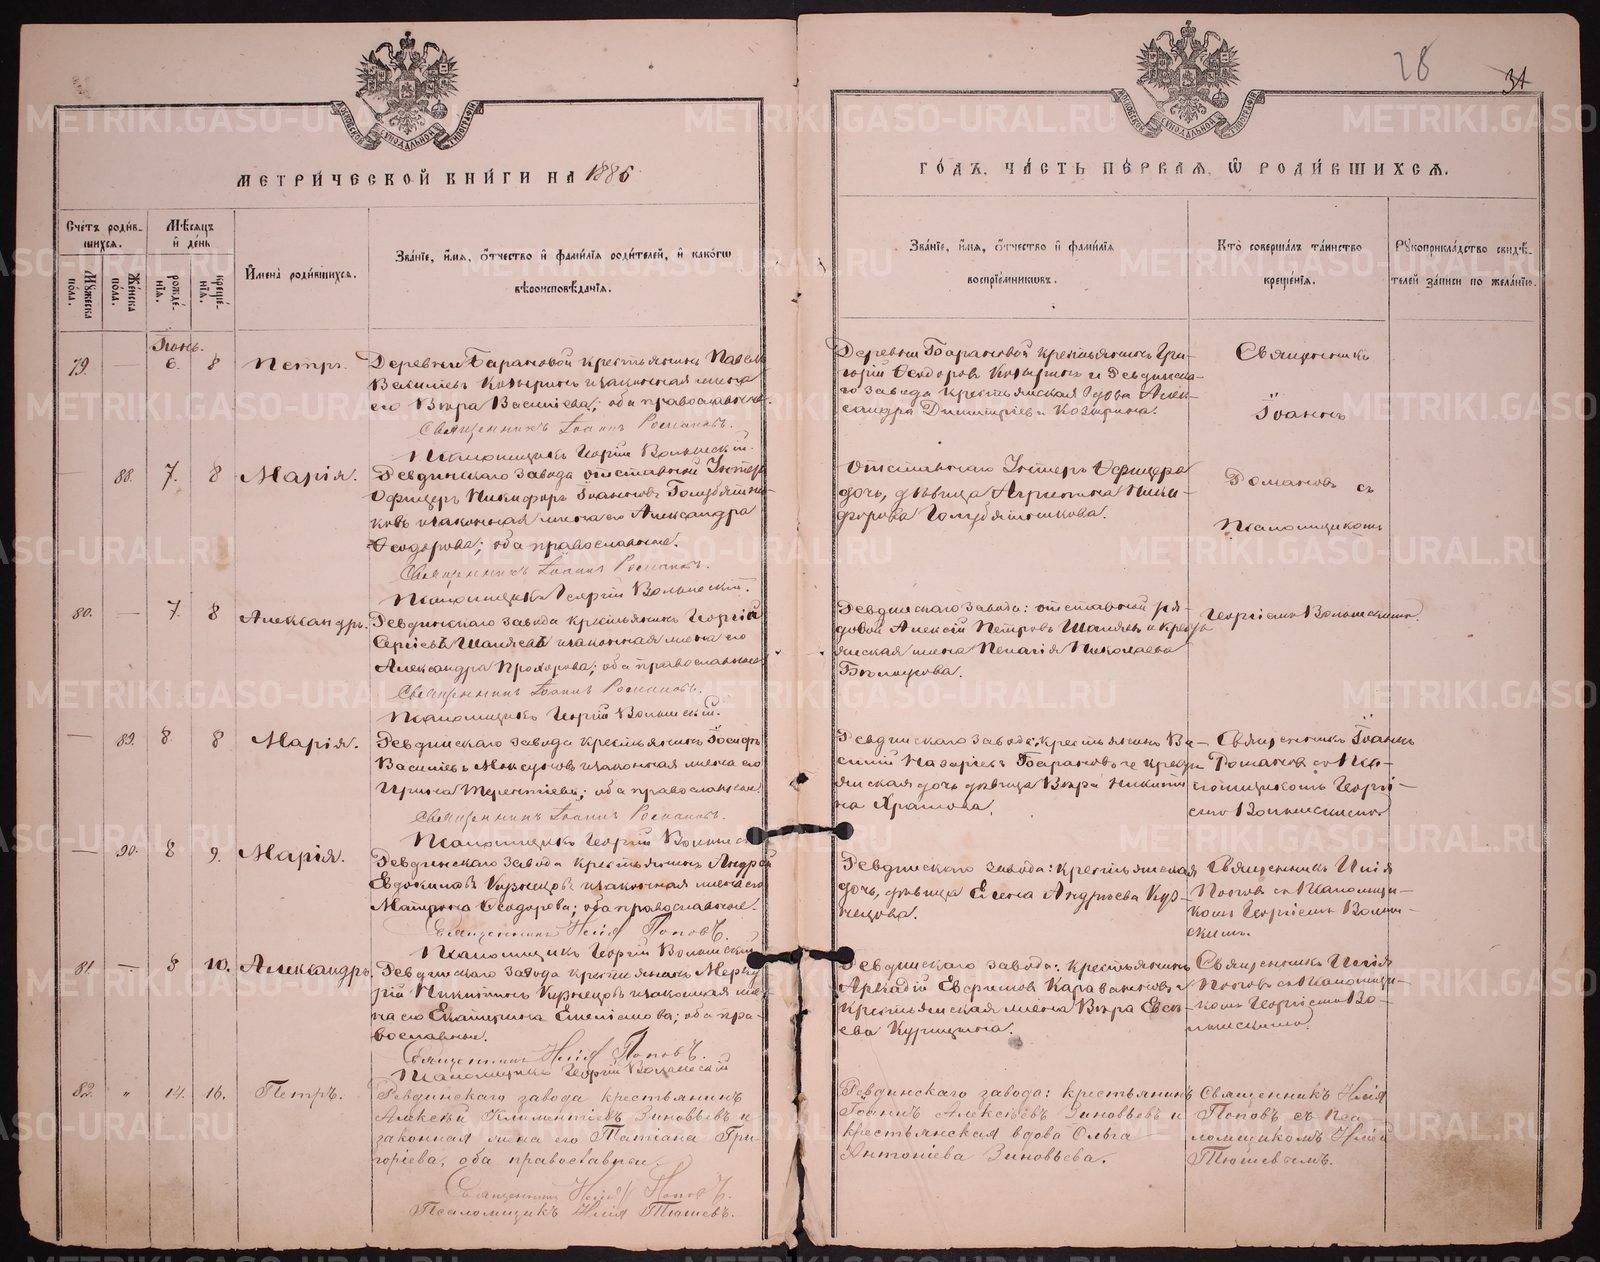 28
31
МЕТРИ́ЧЕСКОЙ КНИ́ГИ НА 1886
ГО́ДЪ, ЧА́СТЬ ПЕ́РВАЯ, Ѡ РОДИ́ВШИХСЯ.
Сче́тъ роди́в-
шихся.
Му́жеска по́ла.
Же́нска по́ла.
Мѣ́сяцъ и де́нь
рожде́-
нія.
креще́-
нія.
Имена̀ роди́вшихся.
Зва́ніе, и́мя, о́тчество и фами́лія роди́телей, и како́гѡ
вѣроисповѣ́данія.
Зва́ніе, и́мя, о́тчество и фами́лія
воспріе́мниковъ.
Кто̀ соверша́лъ та́инство
креще́нія.
Рукоприкла́дство свидѣ́-
телей за́писи по жела́нію.
Іюнь.
79. — 6 8 Петръ.
Деревни Барановой крестьянинъ Павелъ
Васильевъ Козыринъ и законная жена
его Вѣра Васильева; оба православные.
Священникъ Іоаннъ Романовъ.
Псаломщикъ Георгій Волынскій.
Деревни Барановой крестьянинъ Гри-
горій Ѳеодоровъ Козыринъ и Ревдинска-
го завода крестьянская вдова Алек-
сандра Димитріева Козырина.
Священникъ
Іоаннъ
Романовъ съ
Псаломщикомъ
Георгіемъ Волынскимъ.
— 88. 7. 8 Марія.
Ревдинскаго завода отставной Унтеръ
Офицеръ Никифоръ Іоанновъ Голубятни-
ковъ и законная жена его Александра
Ѳеодорова; оба православные.
Священникъ Іоаннъ Романовъ.
Псаломщикъ Георгій Волынскій.
Отставнаго Унтеръ Офицера
дочь, дѣвица Агрипина Ники-
форова Голубятникова.
80. — 7. 8 Александръ.
Ревдинскаго завода крестьянинъ Георгій
Сергіевъ и законная жена его
Александра Прохорова; оба православные.
Священникъ Іоаннъ Романовъ.
Псаломщикъ Георгій Волынскій.
Ревдинскаго завода: отставной ря-
довой Алексій Петровъ и кресть-
янская жена Пелагія Николаева
— 89. 8 8 Марія.
Ревдинскаго завода крестьянинъ Іосифъ
Васильевъ и законная жена его
Ирина Терентіева; оба православные.
Священникъ Іоаннъ Романовъ.
Псаломщикъ Георгій Волынскій
Ревдинскаго завода: крестьянинъ Ва-
силій Назаріевъ Барановъ и кресть-
янская дочь дѣвица Вѣра Никити-
на Храмова.
Священникъ Іоаннъ
Романовъ съ Пса-
ломщикомъ Георгі-
емъ Волынскимъ
— 90. 8 9. Марія.
Ревдинскаго завода крестьянинъ Андрей
Евдокимовъ Кузнецовъ и законная жена его
Матрона Ѳеодорова; оба православные.
Священникъ Илія Поповъ.
Псаломщикъ Георгій Волынскій
Ревдинскаго завода: крестьянская
дочь, дѣвица Елена Андреева Куз-
нецова.
Священникъ Илія
Поповъ съ Псаломщи-
комъ Георгіемъ Волын-
скимъ.
81. — 8 10. Александръ.
Ревдинскаго завода крестьянинъ Мерку-
рій Никитинъ Кузнецовъ и законная же-
на его Екатерина Емеліанова; оба пра-
вославные.
Священникъ Илія Поповъ.
Псаломщикъ Георгій Волынскій
Ревдинскаго завода: крестьянинъ
Аркадій Евфимовъ Каравановъ и
крестьянская жена Вѣра Евсе-
ева Курицына.
Священникъ Илія
Поповъ съ Псаломщи-
комъ Георгіемъ Во-
лынскимъ.
82. " 14. 16. Петръ.
Ревдинскаго завода крестьянинъ
Алексѣй Климентіевъ Зиновьевъ и
законная жена его Татіана Гри-
горіева, оба православные.
Священникъ Илія Поповъ.
Псаломщикъ Илія Тюшевъ.
Ревдинскаго завода: крестьянинъ
Іоаннъ Алексѣевъ Зиновьевъ и
крестьянская вдова Ольга
Антоніева Зиновьева.
Священникъ Илія
Поповъ съ Пса-
ломщикомъ Иліей
Тюшевымъ.
METRIKI.GASO-URAL.RU